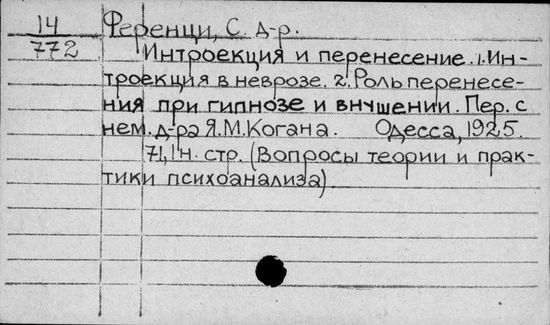 14
772
Ференци, С. д-р.
Интроекция и перенесение. 1. Ин-
троекция в неврозе. 2. Роль перенесе-
ния при гипнозе и внушении. Пер. с
нем. д-ра Я.М.Когана. Одесса, 1925.
71, 1 н. стр. (Вопросы теории и прак-
тики психоанализа).